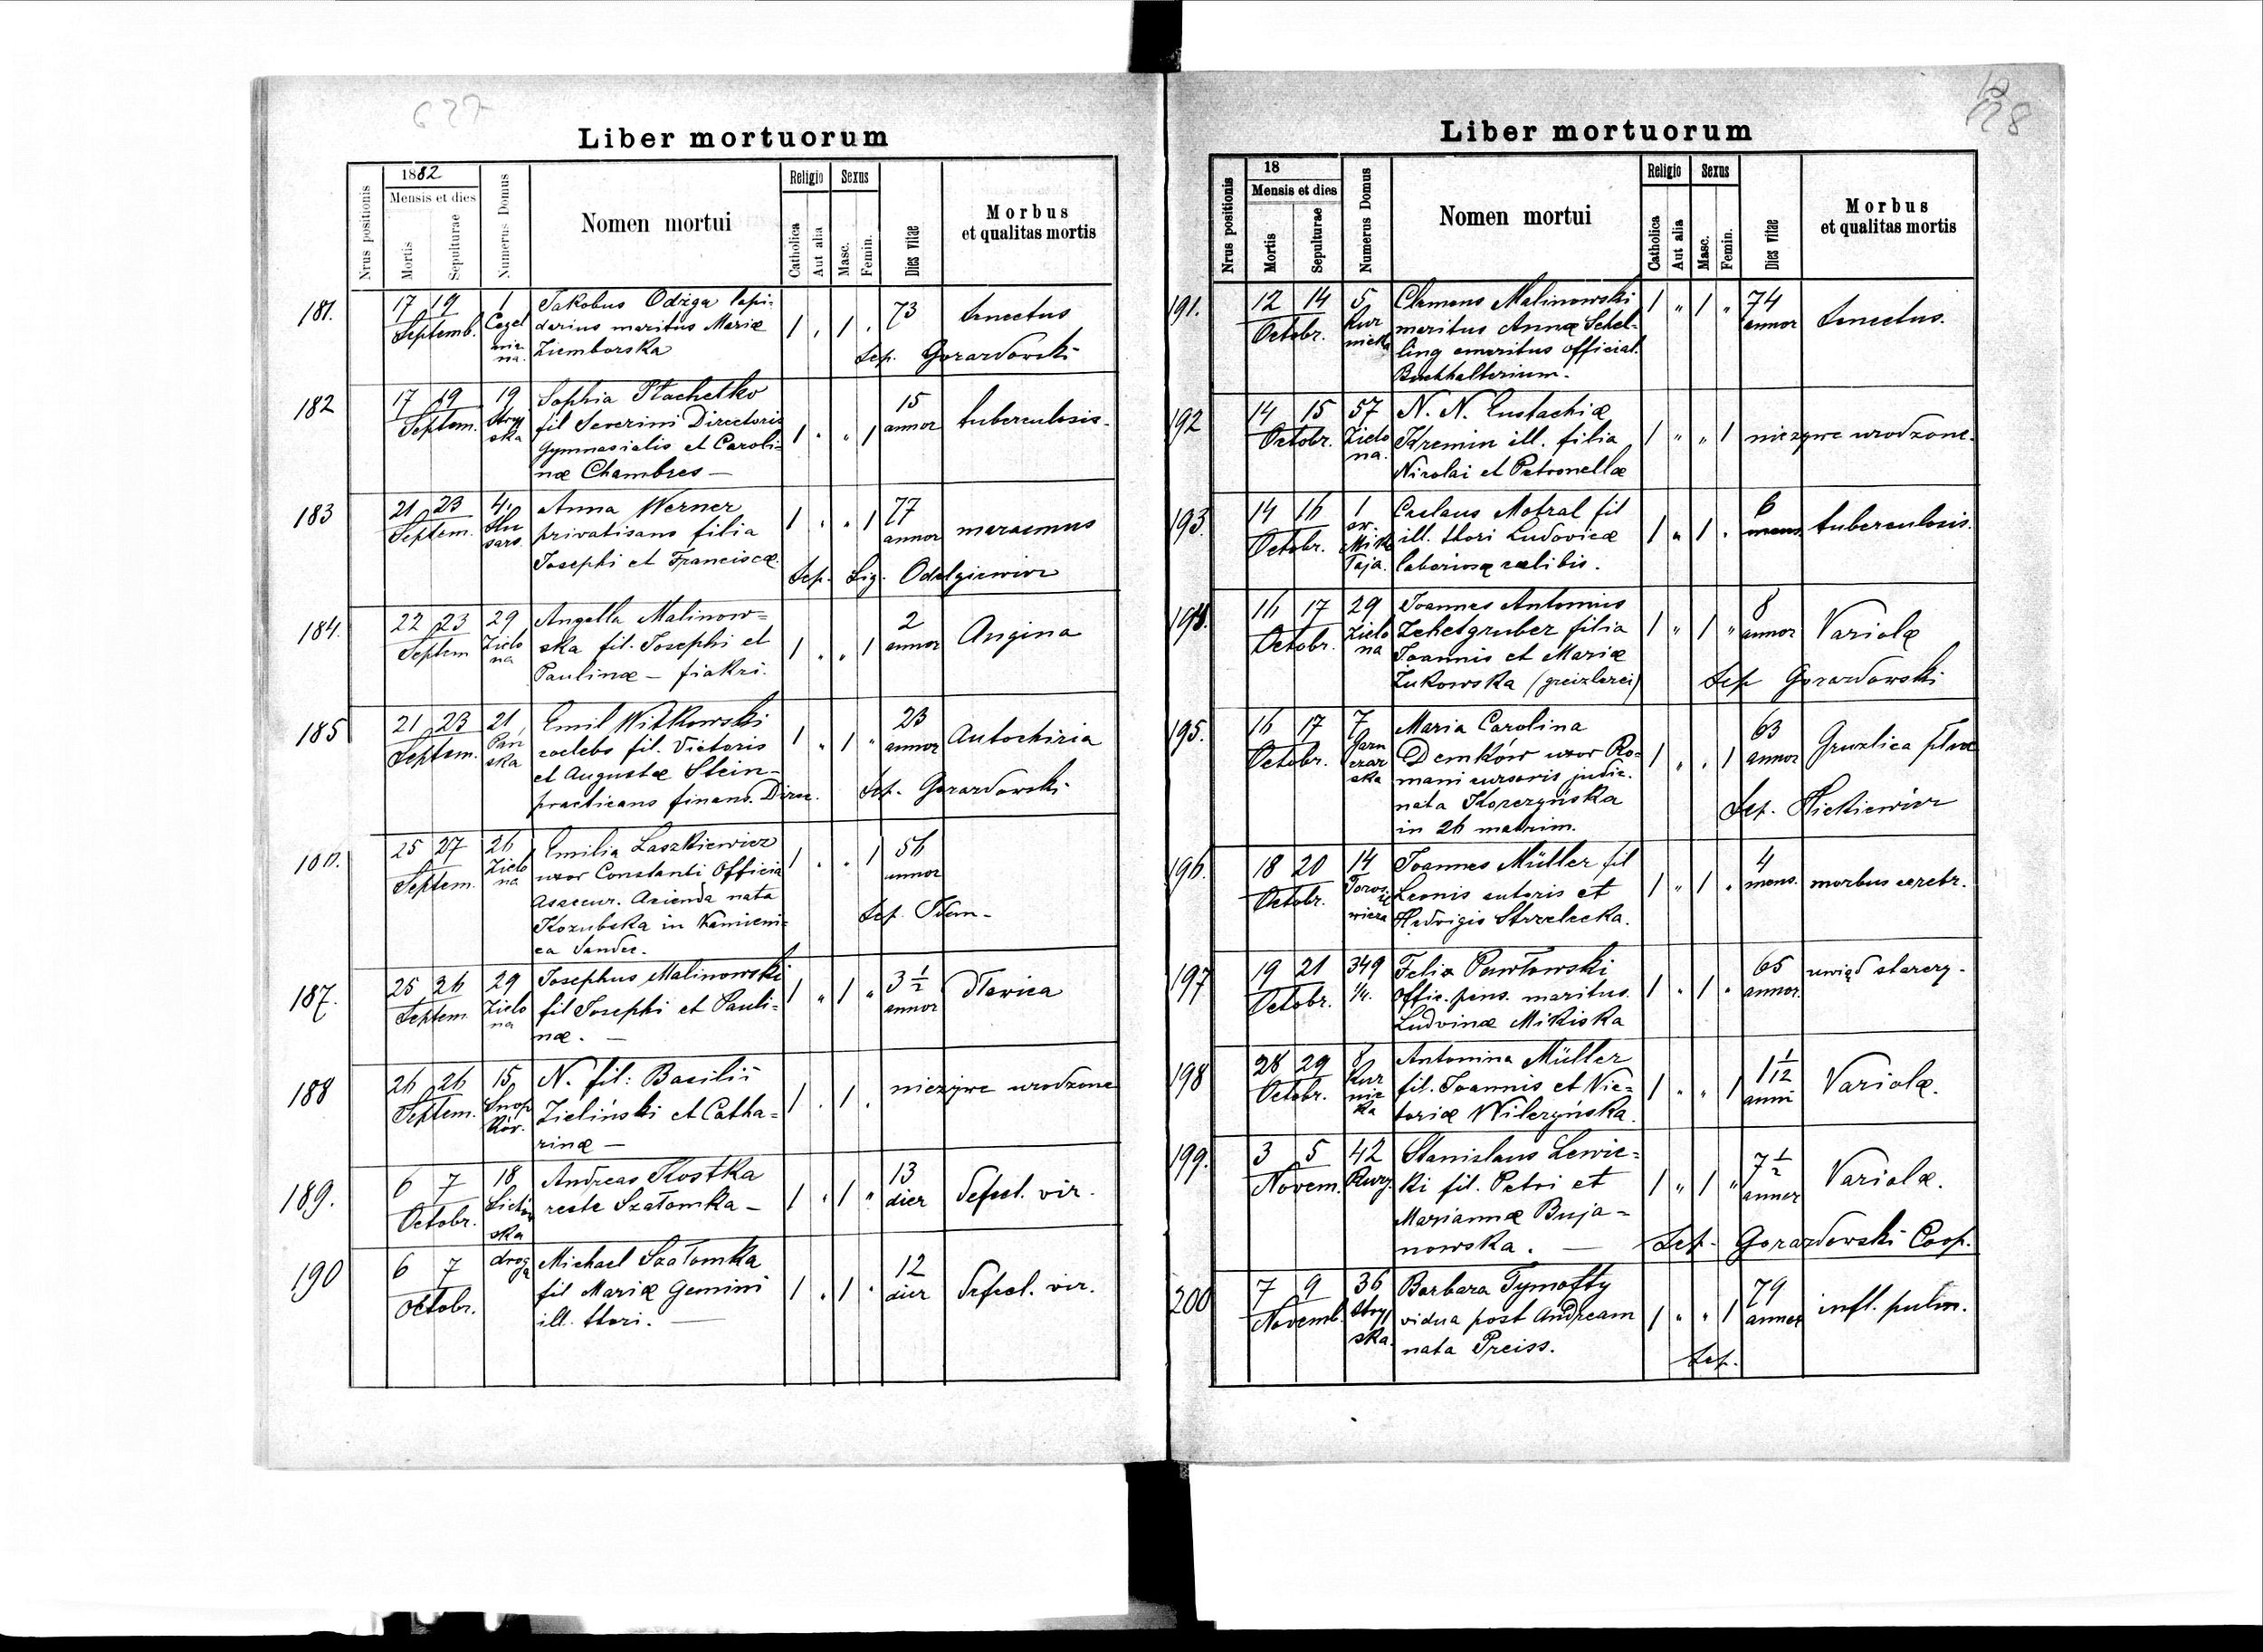 627
Liber mortuorum
1882
Religio Sexus
Mensis et dies
Nrus positionis
Mortis
Sepulturae
Numerus Domus
Nomen mortui
Catholica
Aut alia
Masc.
Femin.
Dies vitae
Morbus
et qualitas mortis
181. 17 19 1 Jakobus Odżga lapi- 73 senectus
Septemb. Cegel darius maritus Mariæ 1 1
nia
na. Ziemborska Sep. Gorazdowski
182 17 19 19 Sophia Płachetko 15
Septem. Stryj fil Severini Directoris annor tuberculosis.
ska Gymnasialis et Caroli- 1 " " 1
næ Chambres —
183 21 23 4. Anna Werner 77
Septem. privatisans filia 1 " " 1 annor marasmus
Josephi et Franciscæ. Sep. Sig. Odelgiewicz
184. 22 23 29 Angella Malinow= 2
Septem Zielo ska fil. Josephi et 1 " " 1 annor Angina
na Paulinæ — fiakri.
185 21 23 21 Emil Witkowski 23
Septem. Pań coelebs fil. Victoris 1 " 1 " annor Autochiria
ska et Augustæ Stein-
practicans finans. Direc. Sep. Gorazdowski
25 27 26 Emilia Laszkiewicz 1 . . 1 56
Septem. Zielo uxor Constanti Officia annor
na Assecur. Azienda nata
Kozubska in Kamieni- Sep. Idem-
ca Sandec.
187. 25 26 29 Josephus Malinowski 3 1/2
Septem. Zielo fil Josephi et Pauli- 1 " 1 " annor
na næ. —
188 26 26 15 N. fil: Basilii nieżywe urodzone
Septem. Snop Zieliński et Catha= 1 . 1 .
ków. rinæ —
189. 6 7 18 Andreas Kostka 13
Octobr. recte Szałomka — 1 " 1 " dier Defect. vir.
ska
190 6 7 droga Michael Szałomka 12
Octobr. fil Mariæ Gemini 1 . 1 . dier Defect. vir.
ill. thori. —
628
Liber mortuorum
18
Religio Sexus
Mensis et dies
Nrus positionis
Mortis
Sepulturae
Numerus Domus
Nomen mortui
Catholica
Aut alia
Masc.
Femin.
Dies vitae
Morbus
et qualitas mortis
191. 12 14 5 Clemens Malinowski 1 " 1 " 74
Octobr. Kur maritus Annæ Schel- annor senectus.
nicka ling emeritus official.
Buchhalterium.
192 14 15 57 N. N. Eustachiæ
Octobr. Zielo Kremin ill. filia 1 " " 1 nieżywe urodzone.
na. Nicolai et Petronellæ
193. 14 16 1 Ceslaus Motral fil 6
Octobr. św. ill. thori Ludovicæ 1 " 1 . mens. tuberculosis.
Miko
łaja. cælibis.
194. 16 17 29 Joannes Antonius 8
Octobr. Zielo Zehetgruber filia 1 " 1 " annor Variolæ
na Joannis et Mariæ
Żukowska (greizlerei) Sep Gorazdowski
195. 16 17 7 Maria Carolina 63
Octobr. Garn Demków uxor Ro- 1 " . 1 annor Gruzlica płuc
carska mani cursoris judic.
nata Korczyńska Sep. Hickiewicz
in 26 matrim.
196. 18 20 14 Joannes Müller fil 4
Octobr. Toros Leonis sutoris et 1 " 1 . mens. morbus cerebr.
wicza Hedvigis Strzelecka.
197 19 21 349 Felix Pawłowski 65 uwiąd starczy-
Octobr. 1/4. Offic. pens. maritus 1 " 1 " annor.
Ludvinæ Mikiska
198 28 29 8 Antonina Müller 1 1/12
Octobr. Kur fil. Joannis et Vic= 1 " " 1 anni Variolæ.
nic
ka toriæ Wilczyńska.
199. 3 5 42 Stanislaus Lewic= 7 1/2
Novem. ki fil. Petri et 1 " 1 " annor Variolæ.
Mariannæ Buja-
nowska. — Sep. Gorazdowski Coop.
200 7 9 36 Barbara Tymofty 79
Novemb. Stryj vidua post Andream 1 " " 1 annor infl. pulm.
ska. nata Preiss. Sep.